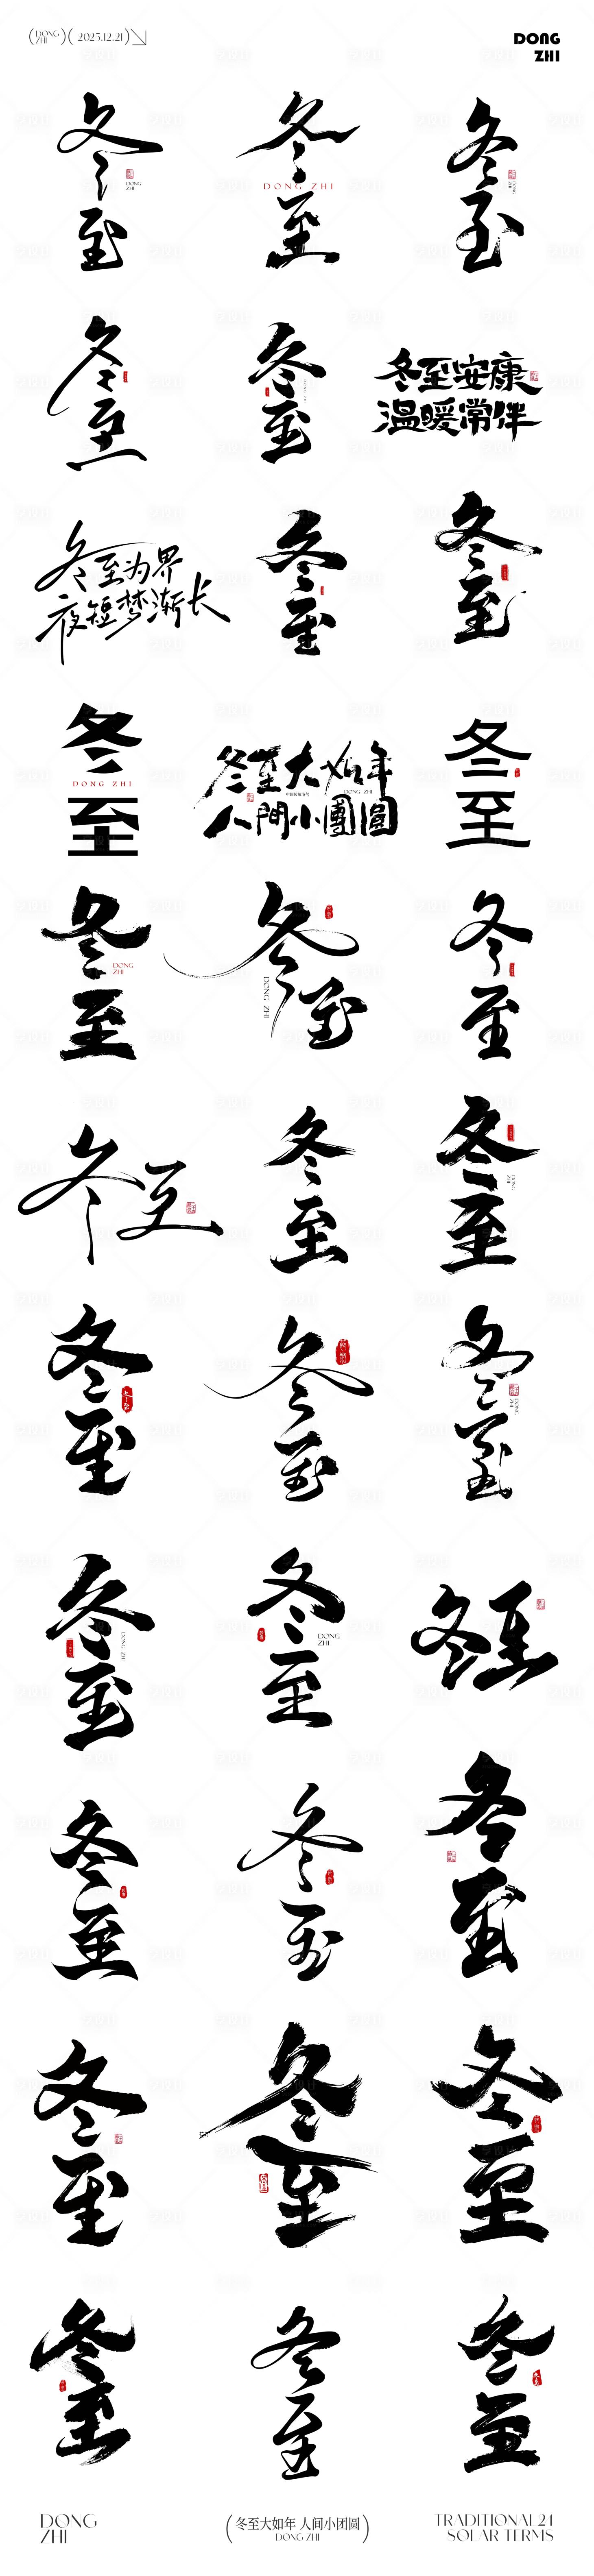 DONG
ZHI
2025.12.21
DONG
ZHI
冬至
DONG
ZHI
冬至
DONG ZHI
冬至
DONG
ZHI
冬至
冬至
冬至安康
温暖常伴
冬至为界
夜短梦渐长
冬至
冬至
冬至
DONG ZHI
冬至大如年
中国传统节气
DONG ZHI
人間小團圓
冬至
冬至
DONG
ZHI
冬至
DONG ZHI
冬至
冬至
冬至
冬至
DONG
ZHI
冬至
冬至
冬至
DONG
ZHI
冬至
DONG ZHI
冬至
DONG
ZHI
冬至
冬至
冬至
冬至
冬至
冬至
冬至
冬至
冬至
冬至
DONG
ZHI
冬至大如年 人间小团圆
DONG ZHI
TRADITIONAL 24
SOLAR TERMS